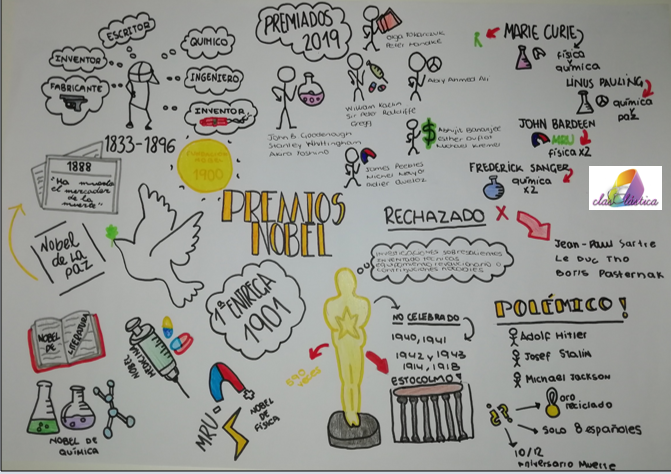 ESCRITOR
INVENTOR
QUIMICO
FABRICANTE
INGENIERO
INVENTOR
1833-1896
1888
"Ha muerto
el mercader
de la
muerte"
1900
Nobel
de la
paz
PREMIADOS
2019
Olga Tokarczuk
Peter Handke
John B. Goodenough
Stanley Whittingham
Akira Yoshino
William Kaelin
Sir Peter Ratcliffe
Gregg
Abiy Ahmed Ali
Abhijit Banerjee
Esther Duflo
Michael Kremer
James Peebles
Michel Mayor
Didier Queloz
MARIE CURIE
física
y
química
LINUS PAULING
química
y
paz
JOHN BARDEEN
MRU
física x2
FREDERICK SANGER
química
x2
clasPlástica
PREMIOS
NOBEL
1ª ENTREGA
1901
RECHAZADO X
Jean-Paul Sartre
Le Duc Tho
Boris Pasternak
Investigaciones sobresalientes
Inventado técnicas
equipamiento revolucionario o
contribuciones notables
NO CELEBRADO
1940, 1941
1942 y 1943
1914, 1918
ESTOCOLMO
590
veces
POLÉMICO!
Adolf Hitler
Josef Stalin
Michael Jackson
oro
reciclado
solo 8 españoles
10/12
Aniversario Muerte
NOBEL
DE
LITERATURA
NOBEL
MEDICINA
NOBEL DE
QUÍMICA
MRU
NOBEL
DE
FÍSICA